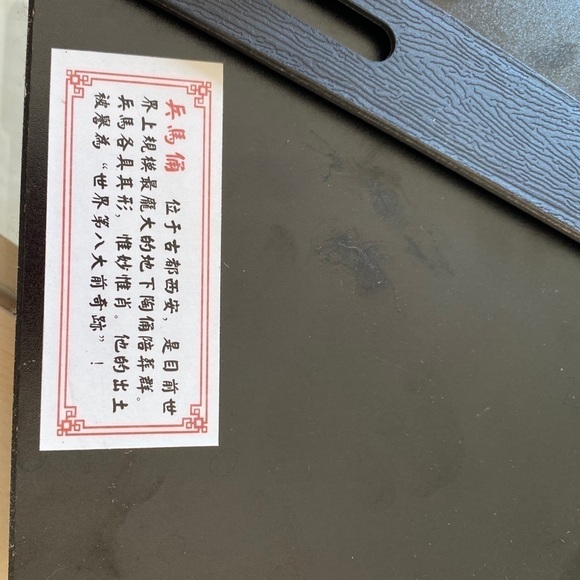 兵馬俑 位于古都西安，是目前世
界上規模最龐大的地下陶俑陪葬群。
兵馬各具其形，惟妙惟肖。他的出土
被譽為“世界第八大前奇跡”！